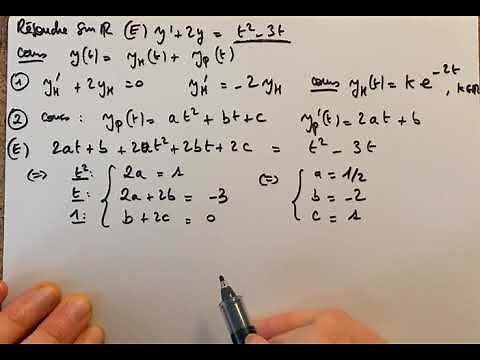 Résoudre sur ℝ (E) y' + 2y = t² - 3t
cours y(t) = y_H(t) + y_P(t)
① y_H' + 2y_H = 0 y_H' = -2 y_H cours y_H(t) = k e^{-2t}, k∈ℝ
② cours : y_P(t) = at² + bt + c y_P'(t) = 2at + b
(E) 2at + b + 2at² + 2bt + 2c = t² - 3t
(=) t²: { 2a = 1 (=) { a = 1/2
t: 2a + 2b = -3 b = -2
1: b + 2c = 0 c = 1